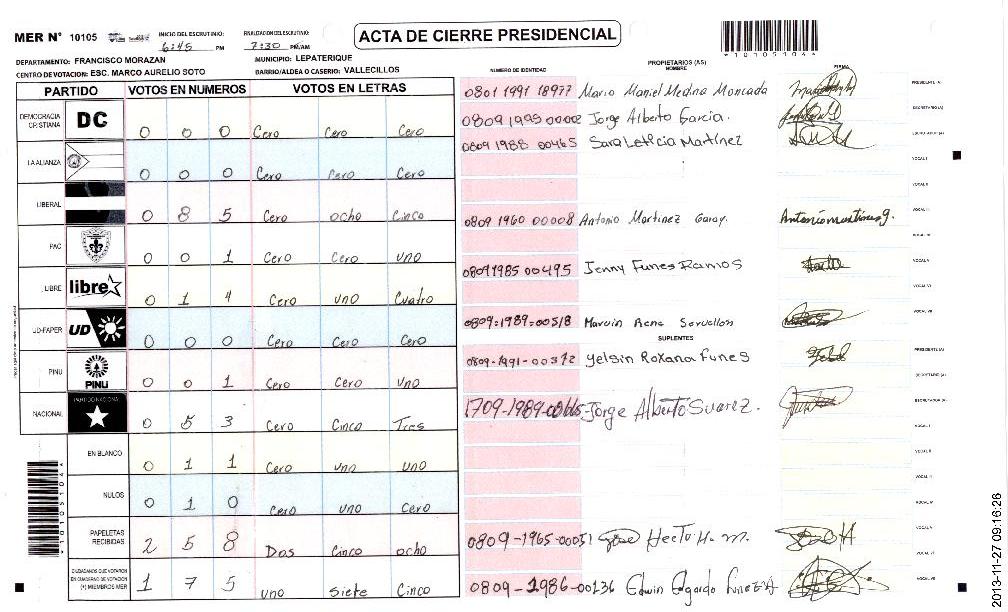 MER N° 10105 INICIO DEL ESCRUTINIO: 6:45 PM FINALIZACION DEL ESCRUTINIO: 7:30 PM/AM
ACTA DE CIERRE PRESIDENCIAL
*10105104*
DEPARTAMENTO: FRANCISCO MORAZAN MUNICIPIO: LEPATERIQUE
CENTRO DE VOTACION: ESC. MARCO AURELIO SOTO BARRIO/ALDEA O CASERIO: VALLECILLOS
PARTIDO VOTOS EN NUMEROS VOTOS EN LETRAS
DEMOCRACIA CRISTIANA DC 0 0 0 Cero Cero Cero
LA ALIANZA 0 0 0 Cero Cero Cero
LIBERAL 0 8 5 Cero ocho Cinco
PAC 0 0 1 Cero Cero uno
LIBRE libre 0 1 4 Cero uno Cuatro
UD-FAPER UD 0 0 0 Cero Cero Cero
PINU PINU 0 0 1 Cero Cero uno
NACIONAL PARTIDO NACIONAL 0 5 3 Cero Cinco Tres
EN BLANCO 0 1 1 Cero uno uno
NULOS 0 1 0 Cero uno Cero
PAPELETAS RECIBIDAS 2 5 8 Dos Cinco ocho
CIUDADANOS QUE VOTARON EN CUADERNO DE VOTACION (+) MIEMBROS MER 1 7 5 uno siete Cinco
NUMERO DE IDENTIDAD PROPIETARIOS (AS) NOMBRE FIRMA
0801 1991 18977 Mario Maniel Medina Moncada PRESIDENTE (A)
0809 1995 00002 Jorge Alberto Garcia. SECRETARIO (A)
0809 1988 00465 Sara Leticia Martínez ESCRUTADOR (A)
VOCAL I
VOCAL II
0809 1960 00008 Antonio Martinez Garay. Antonio martines g. VOCAL III
VOCAL IV
0809 1985 00495 Jenny Funes Ramos VOCAL V
VOCAL VI
0809-1989-00518 Marvin Rene Servellon VOCAL VII
SUPLENTES
0809-1991-00372 Yelsin Roxana Funes PRESIDENTE (A)
SECRETARIO (A)
1709-1989- Jorge Alberto Suarez. ESCRUTADOR (A)
VOCAL I
VOCAL II
VOCAL III
VOCAL IV
0809-1965-00051 Jose Hecto H. m. VOCAL V
VOCAL VI
0809-1986-00136 Edwin Edgardo VOCAL VII
*10105104*
2013-11-27 09:16:26